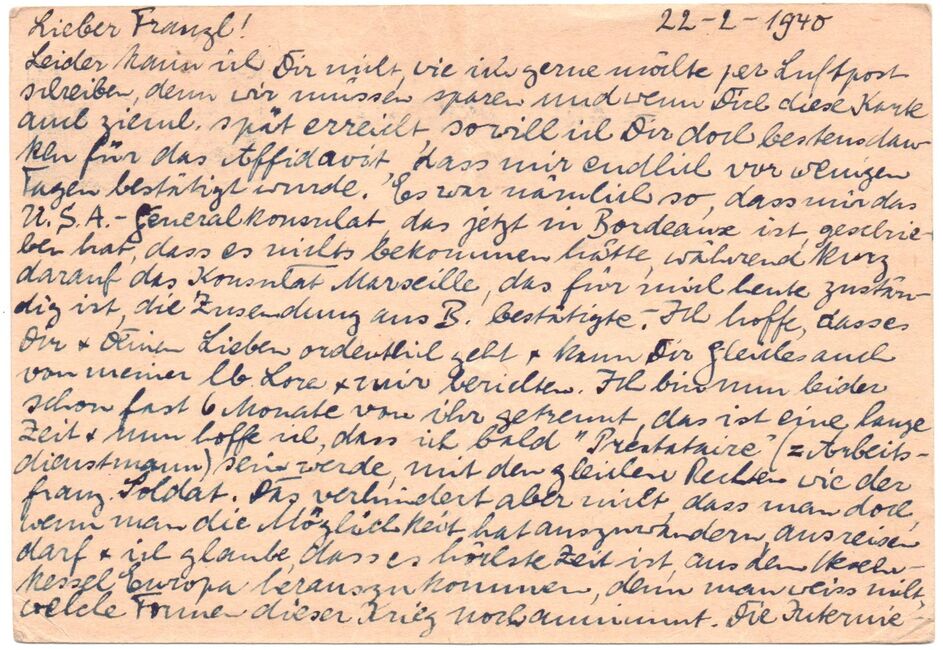 Lieber Franzl! 22-2-1940
Leider kann ich Dir nicht, wie ich gerne möchte per Luftpost
schreiben, denn wir müssen sparen und wenn Dich diese Karte
auch zieml. spät erreicht so will ich Dir doch bestens dan-
ken für das Affidavit, dass mir endlich vor wenigen
Tagen bestätigt wurde. Es war nämlich so, dass mir das
U.S.A.-Generalkonsulat, das jetzt in Bordeaux ist, geschrie-
ben hat, dass es nichts bekommen hätte, während kurz
darauf das Konsulat Marseille, das für mich heute zustän-
dig ist, die Zusendung aus B. bestätigte.- Ich hoffe, dass es
Dir & Deinen Lieben ordentlich geht & kann Dir gleiches auch
von meiner lb. Lore & mir berichten. Ich bin nun leider
schon fast 6 Monate von ihr getrennt, das ist eine lange
Zeit & nun hoffe ich, dass ich bald "Prestataire" (= Arbeits-
dienstmann) sein werde, mit den gleichen Rechten wie der
franz. Soldat. Das verhindert aber nicht, dass man doch,
wenn man die Möglichkeit hat auszuwandern, ausreisen
darf & ich glaube, dass es höchste Zeit ist, aus dem Hexen-
kessel Europa herauszukommen, denn man weiss nicht,
welche Formen dieser Krieg noch annimmt. Die Internie-